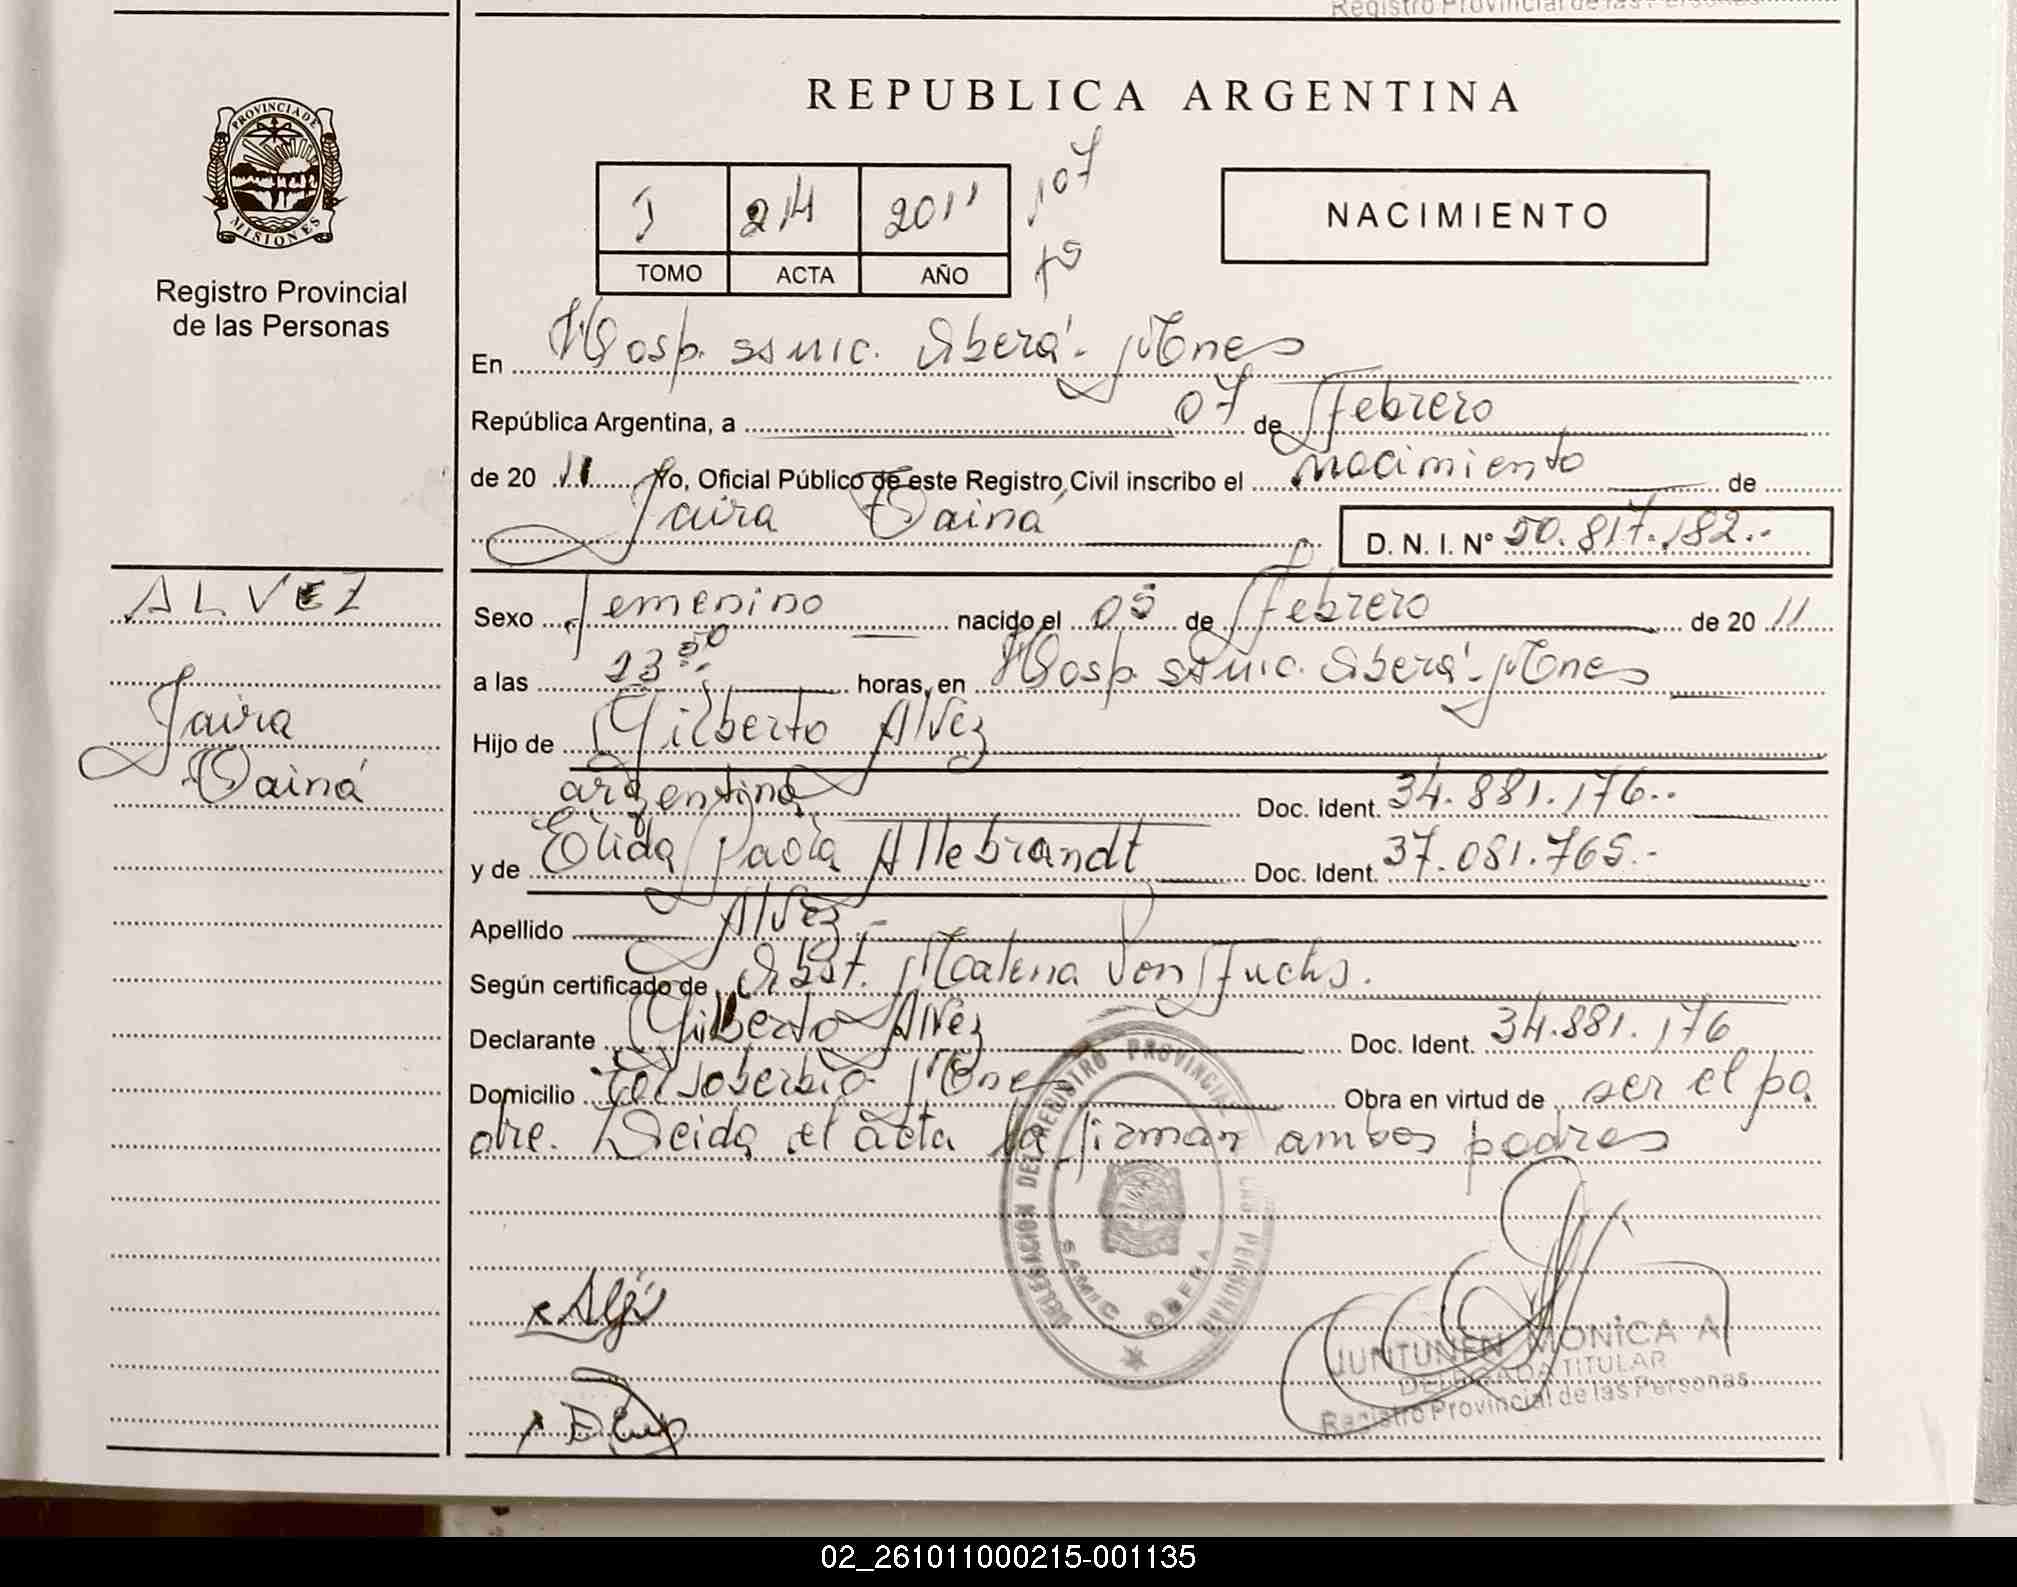 Registro Provincial de las Personas
REPUBLICA ARGENTINA
PROVINCIA DE
MISIONES
Registro Provincial
de las Personas
I 214 2011
TOMO ACTA AÑO
107
NACIMIENTO
En Hosp. SAMIC. Oberá - Mnes
República Argentina, a 07 de Febrero
de 20 11 Yo, Oficial Público de este Registro Civil inscribo el nacimiento de
Jaira Tainá D. N. I. N° 50.817.182.-
ALVEZ
Jaira
Tainá
Sexo Femenino nacido el 05 de Febrero de 20 11
a las 13 50 horas, en Hosp. SAMIC. Oberá - Mnes
Hijo de Gilberto Alvez
argentina Doc. Ident. 34.881.176.-
y de Elida Paola Allebrandt Doc. Ident. 37.081.765.-
Apellido Alvez -
Según certificado de Obst. Malena Von Fuchs.
Declarante Gilberto Alvez Doc. Ident. 34.881.176
Domicilio El Soberbio - Mnes Obra en virtud de ser el pa
dre. Leida el acta la firman ambos padres
DELEGACION DEL REGISTRO PROVINCIAL DE LAS PERSONAS
SAMIC OBERA
JUNTUNEN MONICA A
DELEGADA TITULAR
Registro Provincial de las Personas
02_261011000215-001135